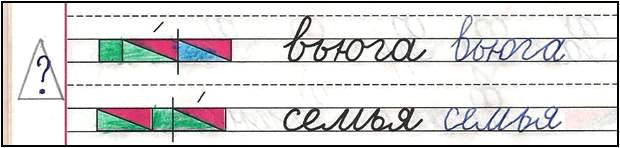 ? вьюга вьюга
семья семья